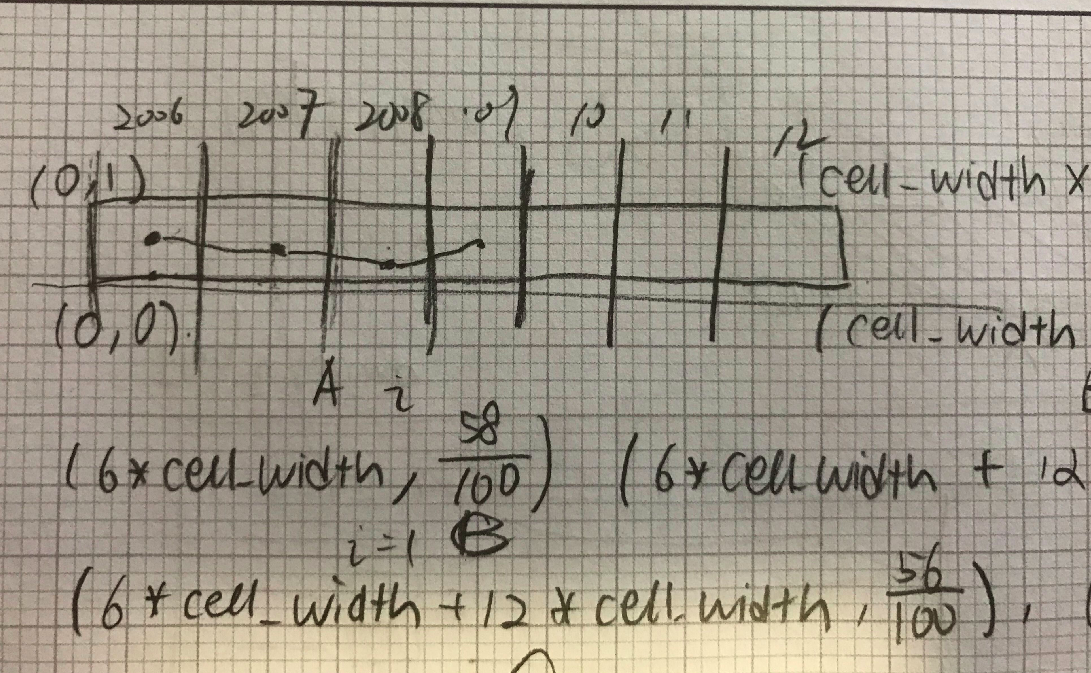 2006 2007 2008 '09 10 11 12
(0,1) (cell_width x
(0,0) (cell_width
A i
(6*cell_width, 58/100) (6*cell width + 12
i=1 B
(6*cell_width +12*cell_width, 56/100),